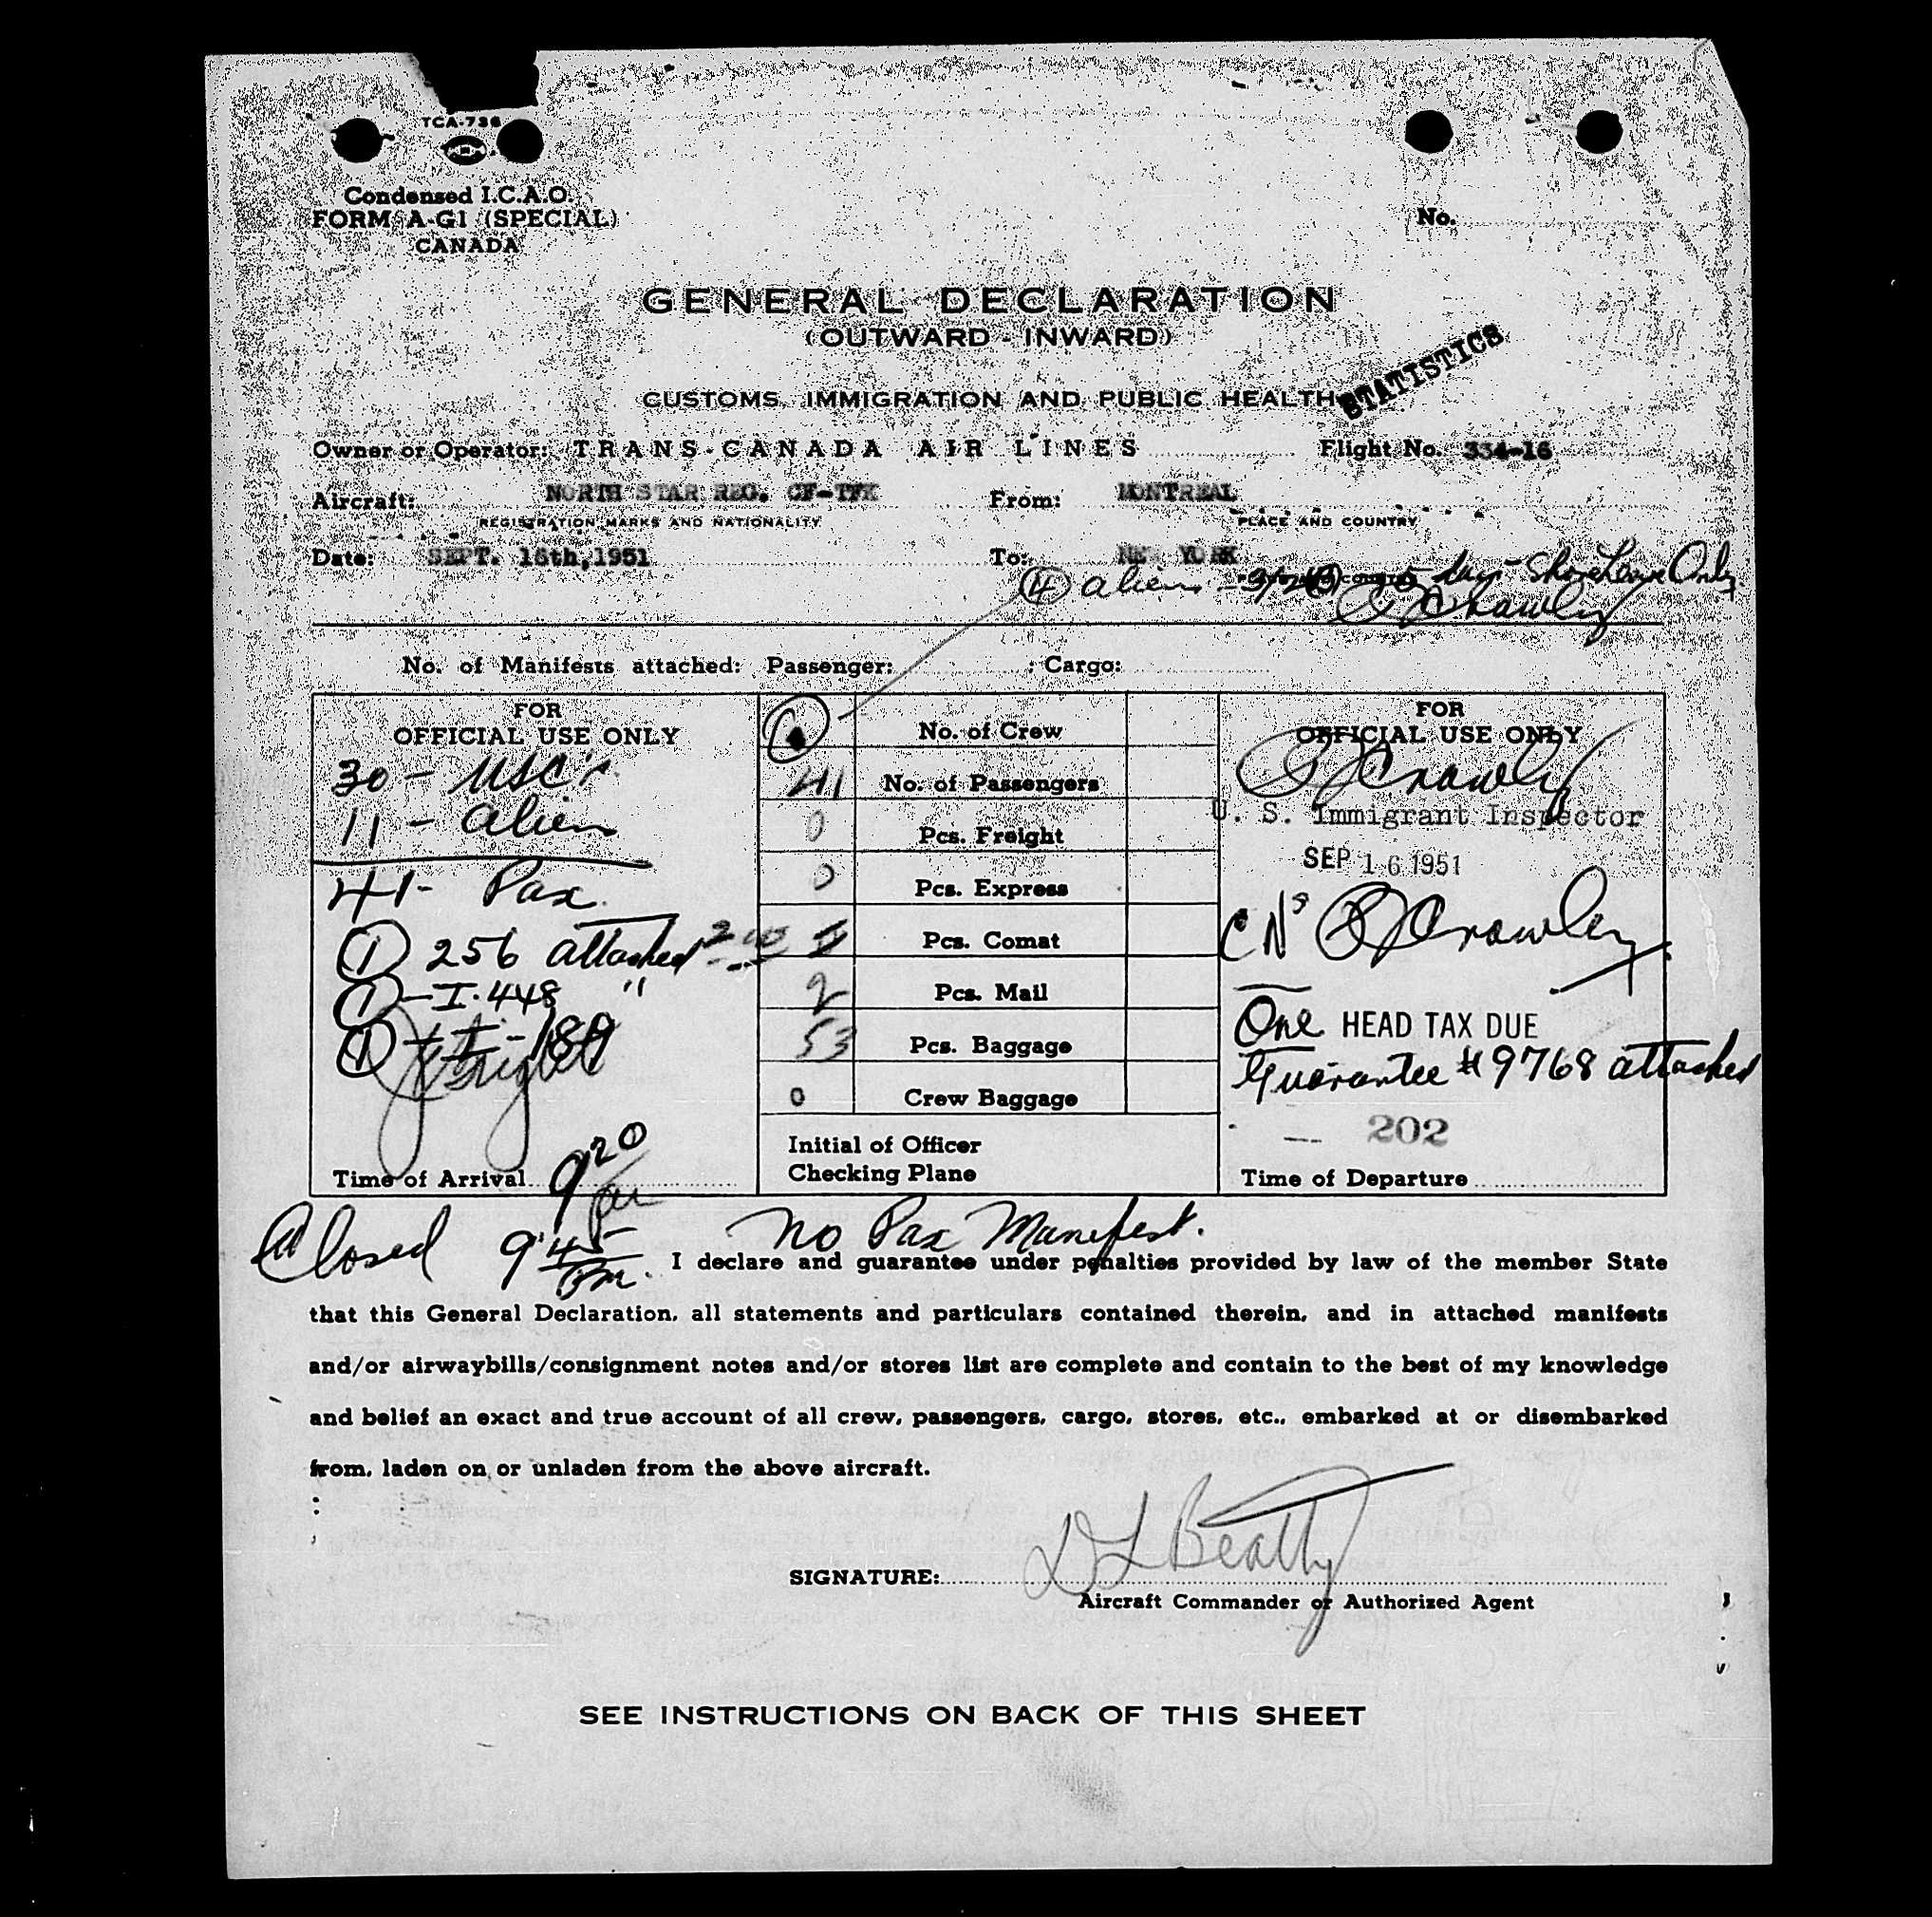 TCA-736
Condensed I.C.A.O.
FORM A-G1 (SPECIAL)
CANADA
No.
GENERAL DECLARATION
(OUTWARD - INWARD)
STATISTICS
CUSTOMS, IMMIGRATION AND PUBLIC HEALTH
Owner or Operator: TRANS-CANADA AIR LINES Flight No. 334-16
Aircraft: NORTH STAR REG. CF-TFK From: MONTREAL
REGISTRATION MARKS AND NATIONALITY PLACE AND COUNTRY
Date: SEPT. 16th, 1951 To: NEW YORK
4 aliens Shore Leave Only
Crawley
No. of Manifests attached: Passenger: ; Cargo:
FOR
OFFICIAL USE ONLY
30 - USC's
11 - alien
41 - Pax.
1 256 attached
1 - I-448 "
1
Time of Arrival 9 20 PM
No. of Crew
41 No. of Passengers
0 Pcs. Freight
0 Pcs. Express
Pcs. Comat
2 Pcs. Mail
53 Pcs. Baggage
0 Crew Baggage
Initial of Officer
Checking Plane
FOR
OFFICIAL USE ONLY
Crawley
U. S. Immigrant Inspector
SEP 16 1951
Crawley
One HEAD TAX DUE
Guarantee #9768 attached
202
Time of Departure
Closed 9 45 PM. No Pax Manifest.
I declare and guarantee under penalties provided by law of the member State
that this General Declaration, all statements and particulars contained therein, and in attached manifests
and/or airwaybills/consignment notes and/or stores list are complete and contain to the best of my knowledge
and belief an exact and true account of all crew, passengers, cargo, stores, etc., embarked at or disembarked
from, laden on or unladen from the above aircraft.
SIGNATURE: D L Beatty
Aircraft Commander or Authorized Agent
SEE INSTRUCTIONS ON BACK OF THIS SHEET